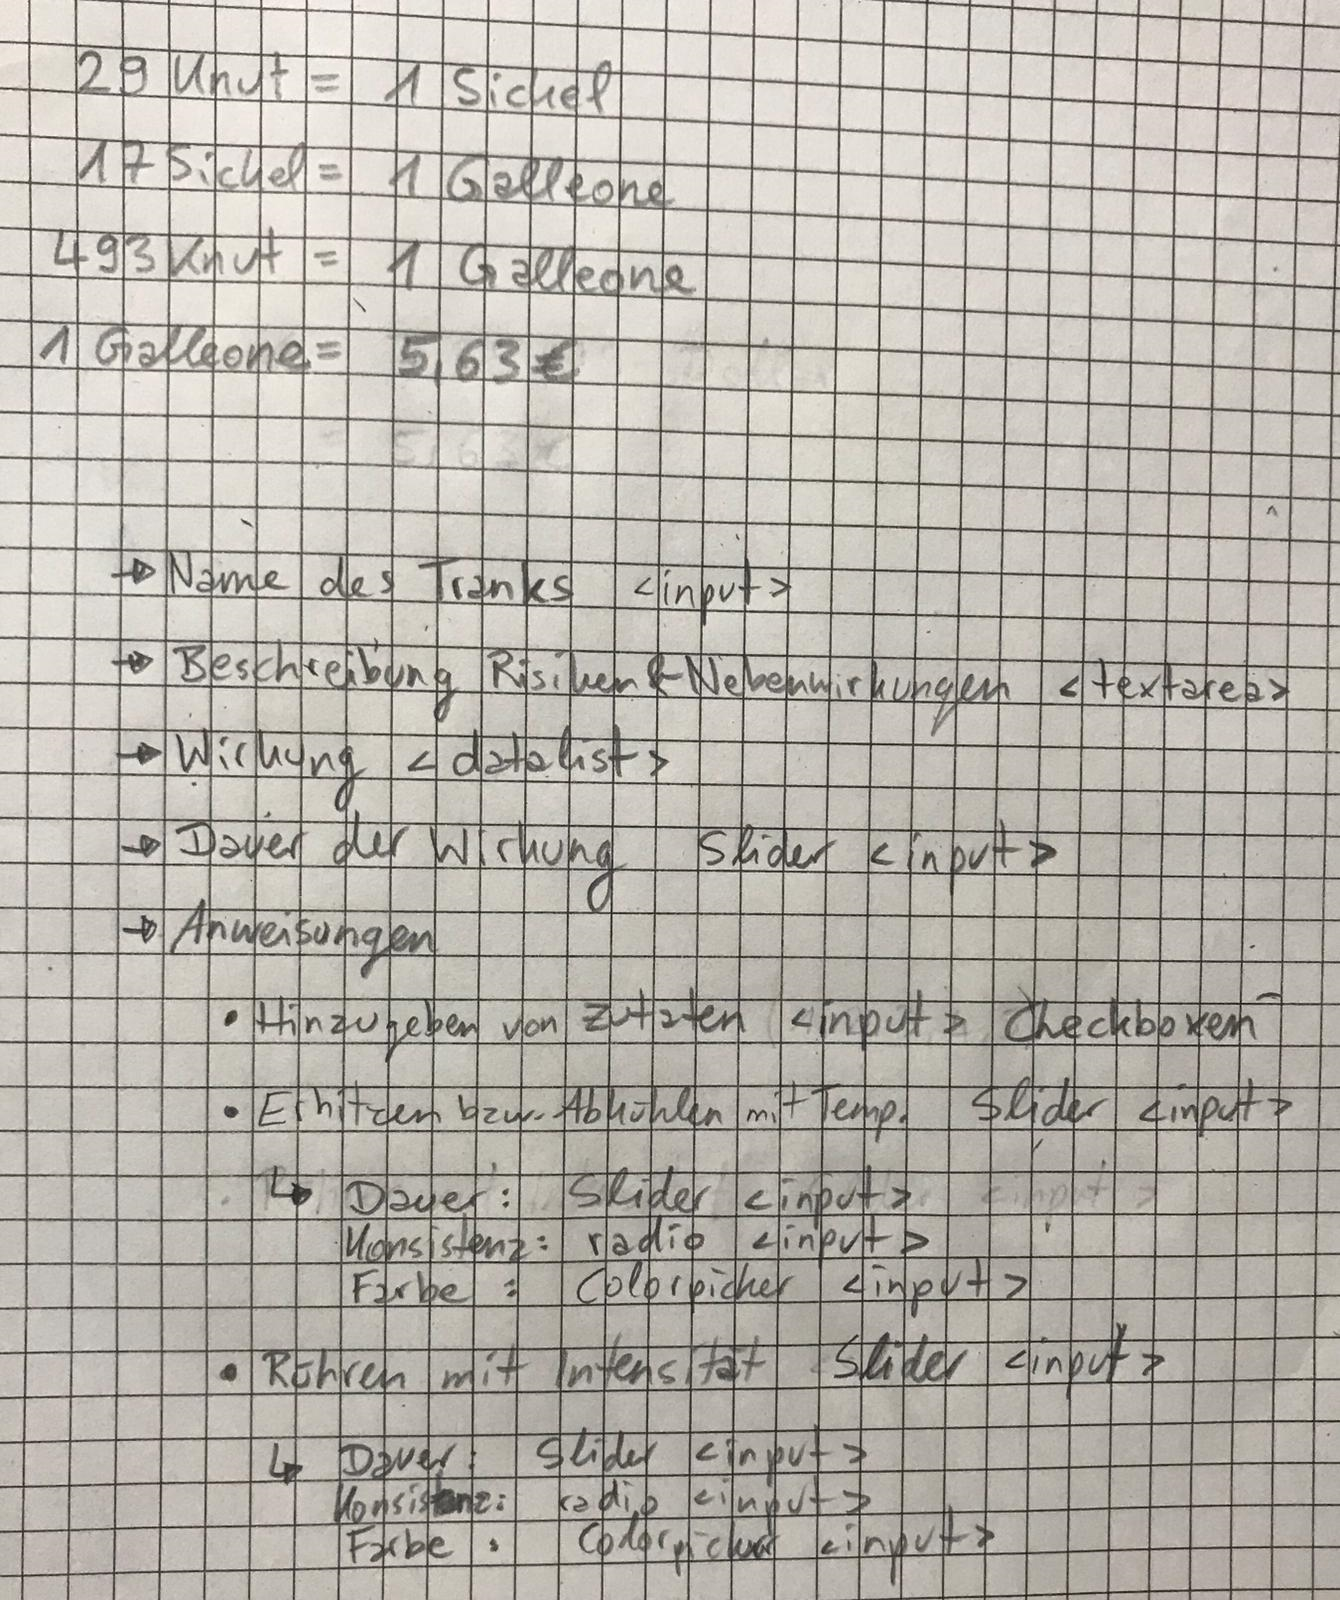 29 Knut = 1 Sickel
17 Sickel = 1 Galleone
493 Knut = 1 Galleone
1 Galleone = 5,63 €
= 5,63 €
→ Name des Tranks <input>
→ Beschreibung Risiken & Nebenwirkungen <textarea>
→ Wirkung <datalist>
→ Dauer der Wirkung Slider <input>
→ Anweisungen
• Hinzugeben von Zutaten <input> Checkboxen
• Erhitzen bzw. Abkühlen mit Temp. Slider <input>
↳ Dauer: Slider <input>
Konsistenz: radio <input>
Farbe : Colorpicker <input>
• Rühren mit Intensität Slider <input>
↳ Dauer: Slider <input>
Konsistenz: radio <input>
Farbe : Colorpicker <input>